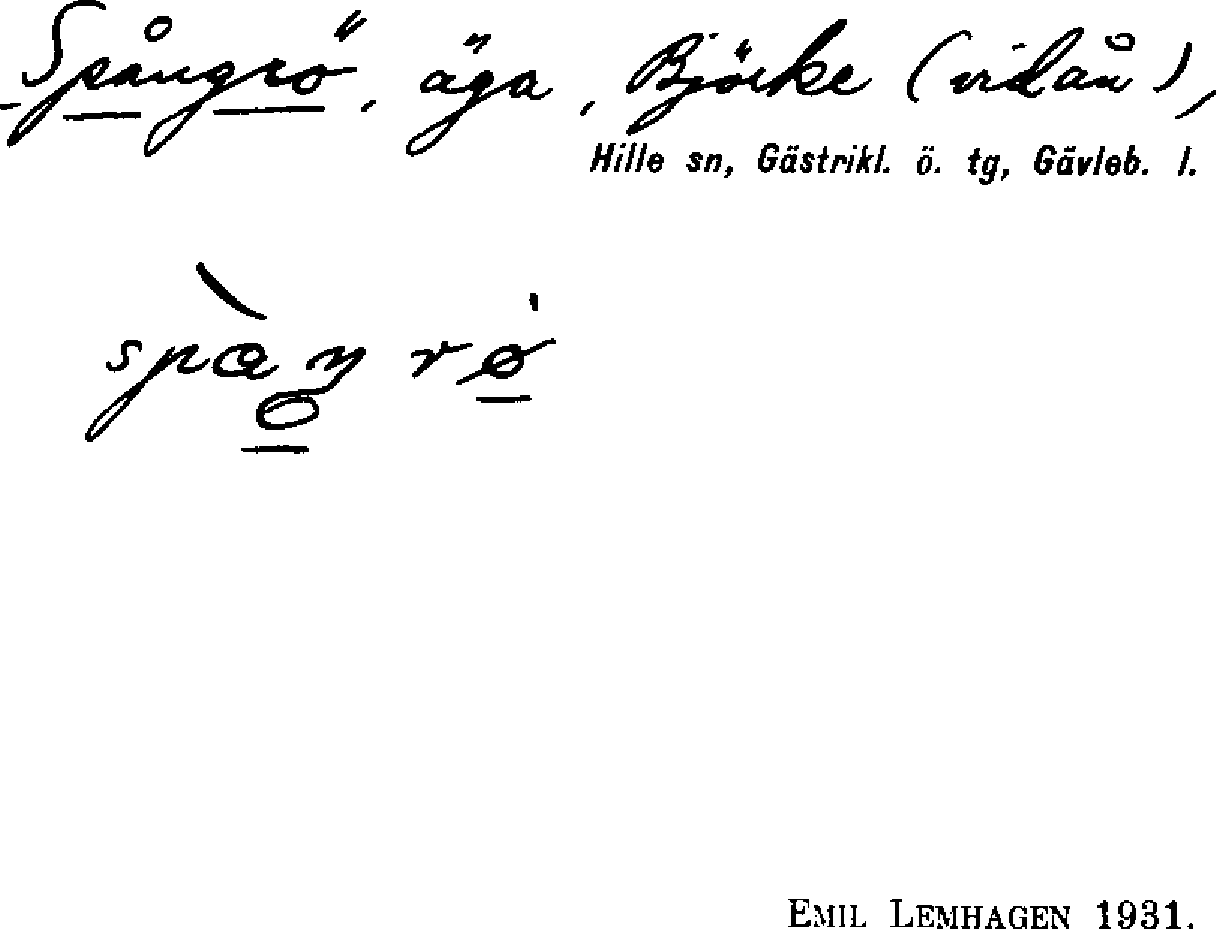 Spångrö, äga, Björke (vid ån),
Hille sn, Gästrikl. ö. tg, Gävleb. l.
EMIL LEMHAGEN 1931.